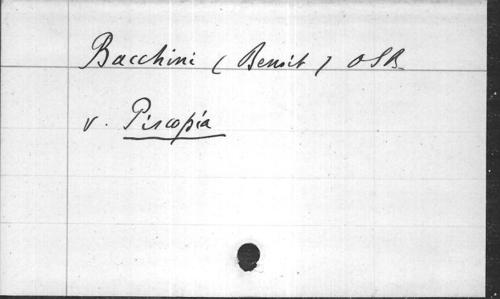 Bacchini (Benoit) OSB
v. Piscopia